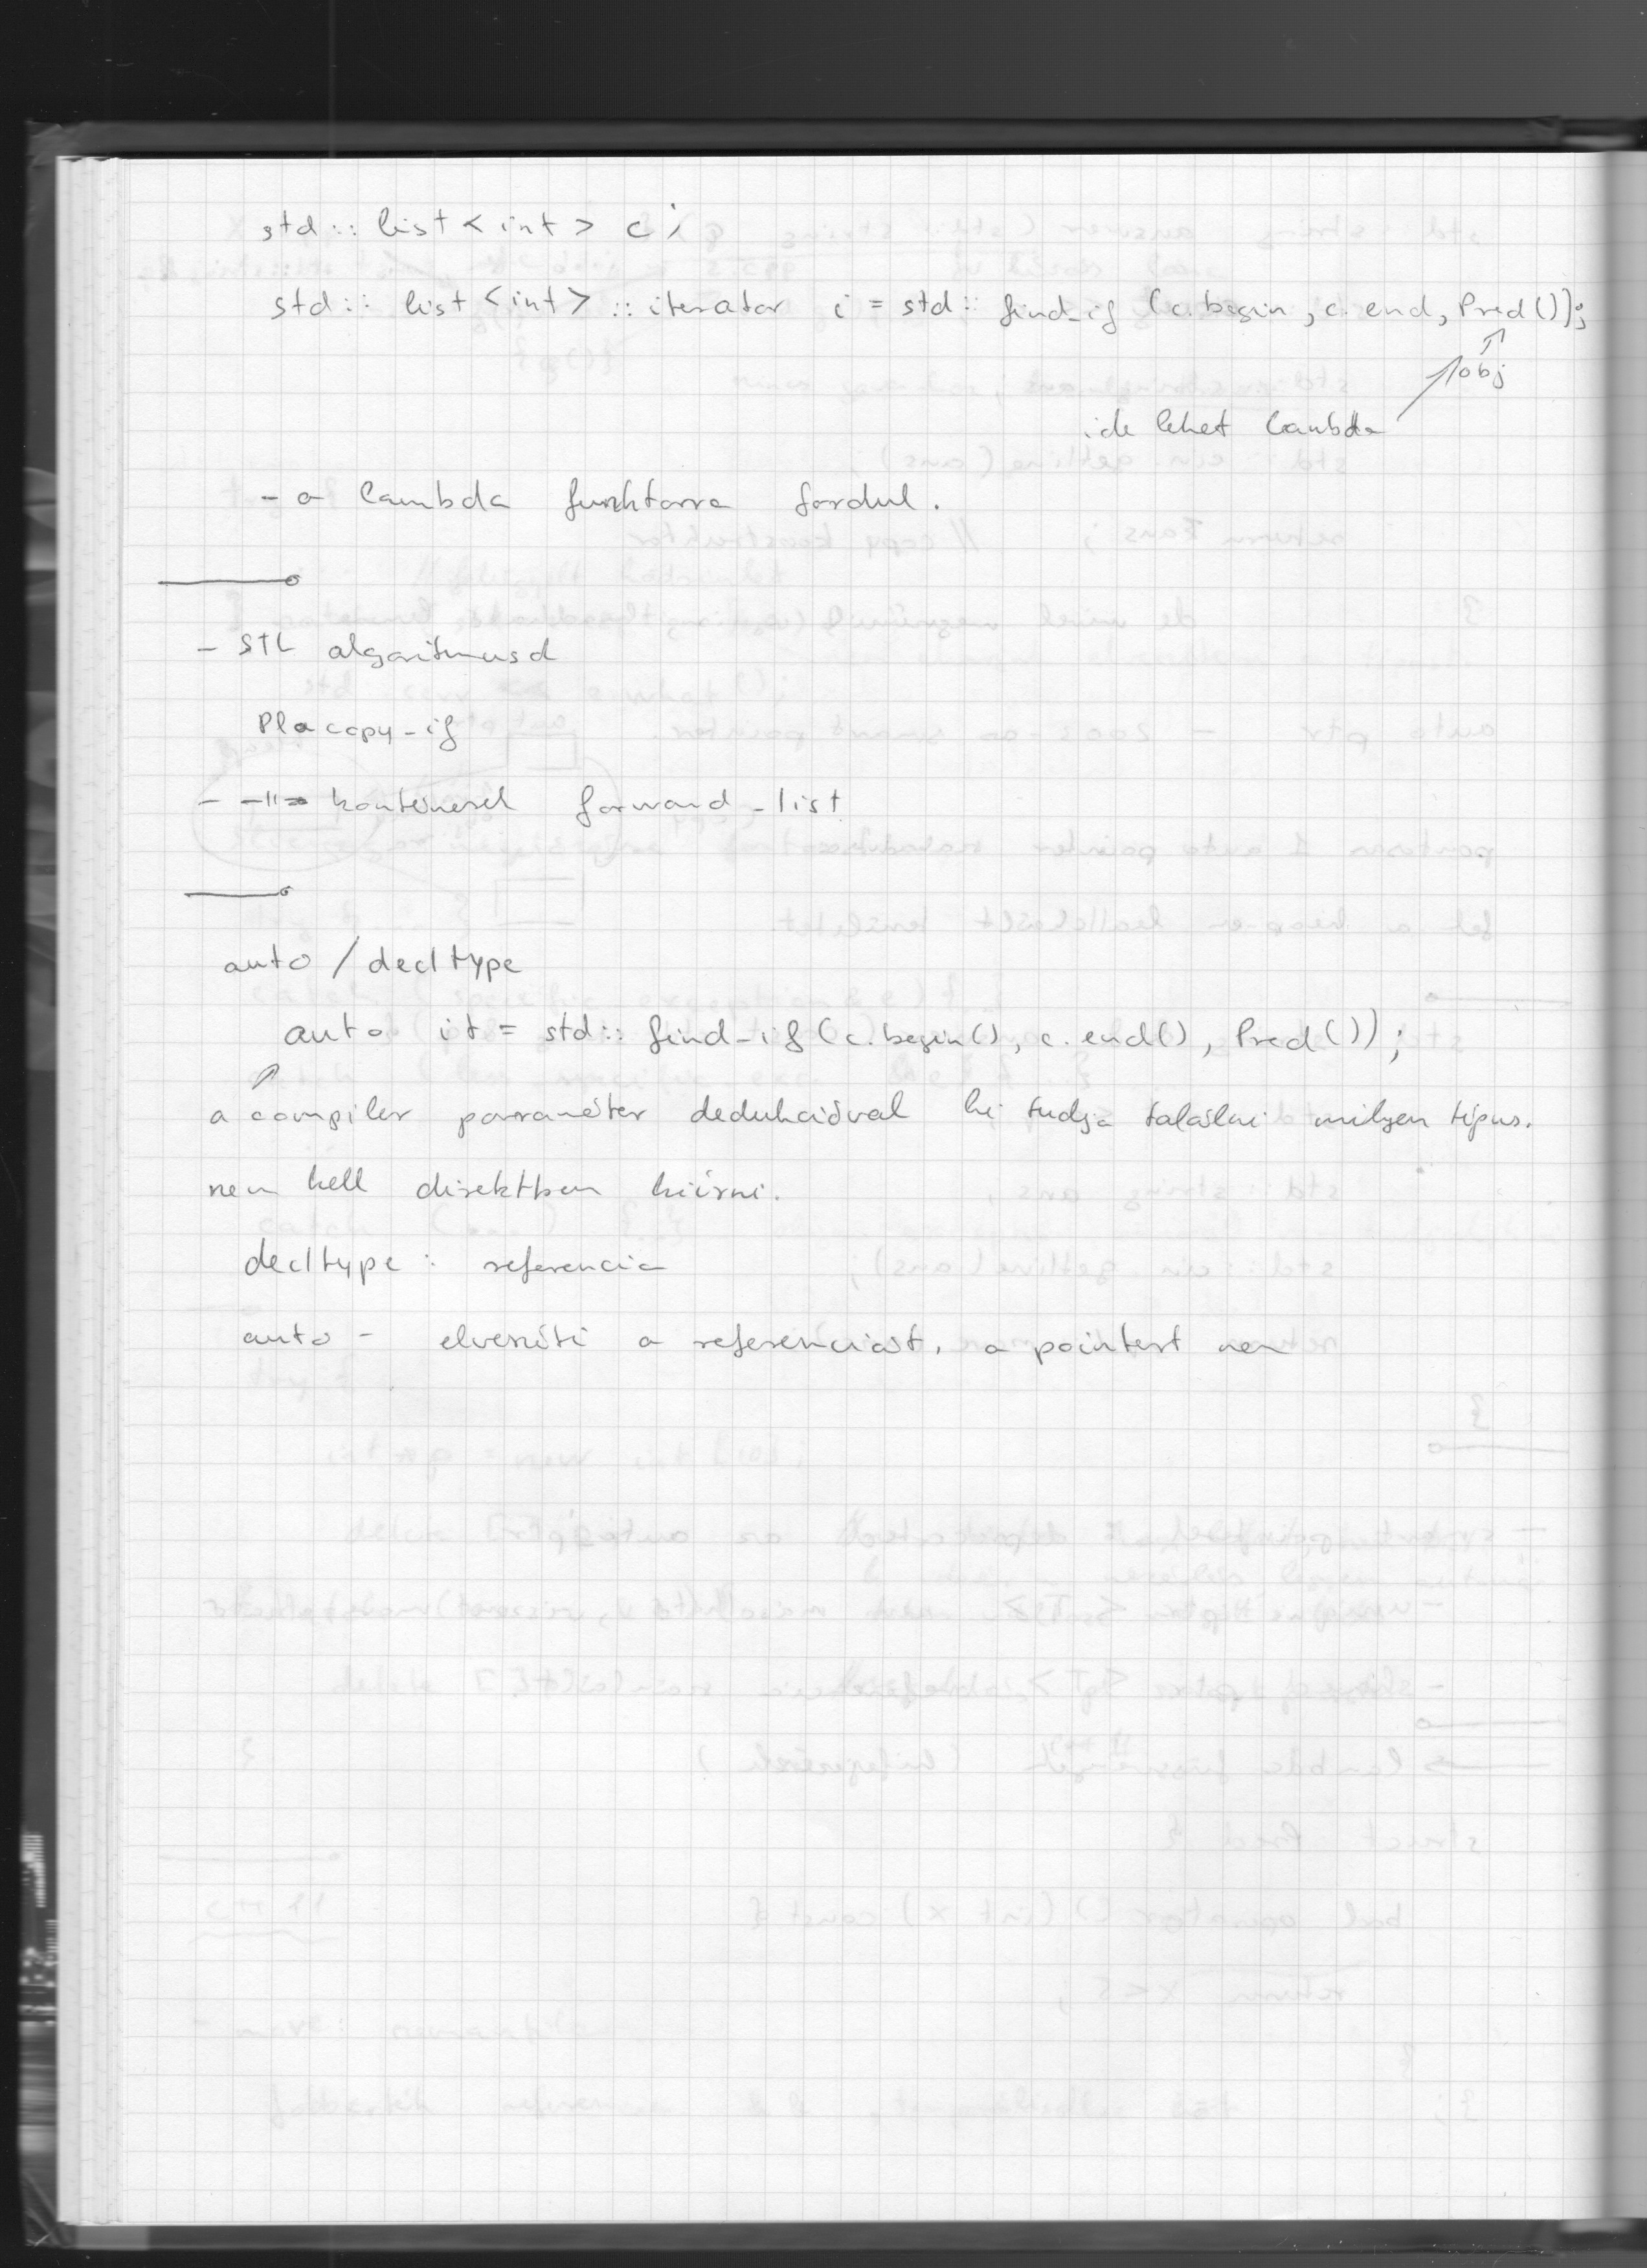 std :: list < int > c;
std :: list <int> :: iterator i = std :: find_if (c.begin, c.end, Pred());
obj
ide lehet lambda
- a lambda funktorra fordul.
- STL algoritmusok
Pl a copy_if
- -11- konténerek forward_list
auto / decltype
auto it = std :: find_if (c.begin(), c.end(), Pred());
a compiler paraméter dedukcióval ki tudja találni milyen típus.
nem kell direktben kiírni.
decltype : referencia
auto - elveszíti a referenciát, a pointert nem